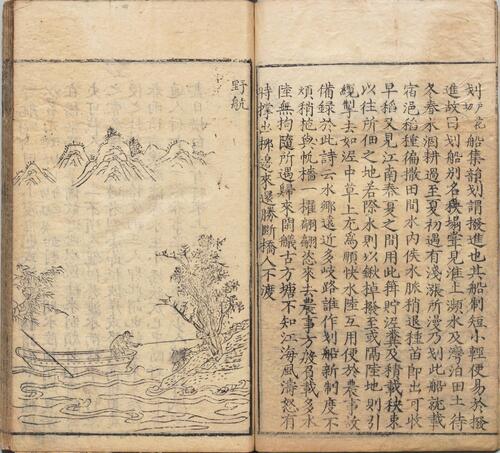 划船集韻划謂撥進也其船制短小輕便易於撥
進故曰划船別名秧塌嘗見淮上瀕水及灣泊田土待
冬春水涸耕過至夏初遇有淺漲所漫乃划此船就載
宿浥稻種徧撒田間水內候水脈稍退種苗即出可收
早稻又見江南春夏之間用此貯泥糞及積載秧束
以往所佃之地若際水則以鍬棹撥至或隔陸地則引
纜掣去如泥中草上尤為順快水陸互用便於農事故
備錄於此詩云水鄉遠近多岐路誰作划船新制度不
煩梢柁與帆檣一櫂翩翩恣來去農事方殷載多水
陸無拘隨所遇歸來閑艤古方塘不知江海風濤怒有
時撑出柳邊來還勝斷橋人不渡
野航